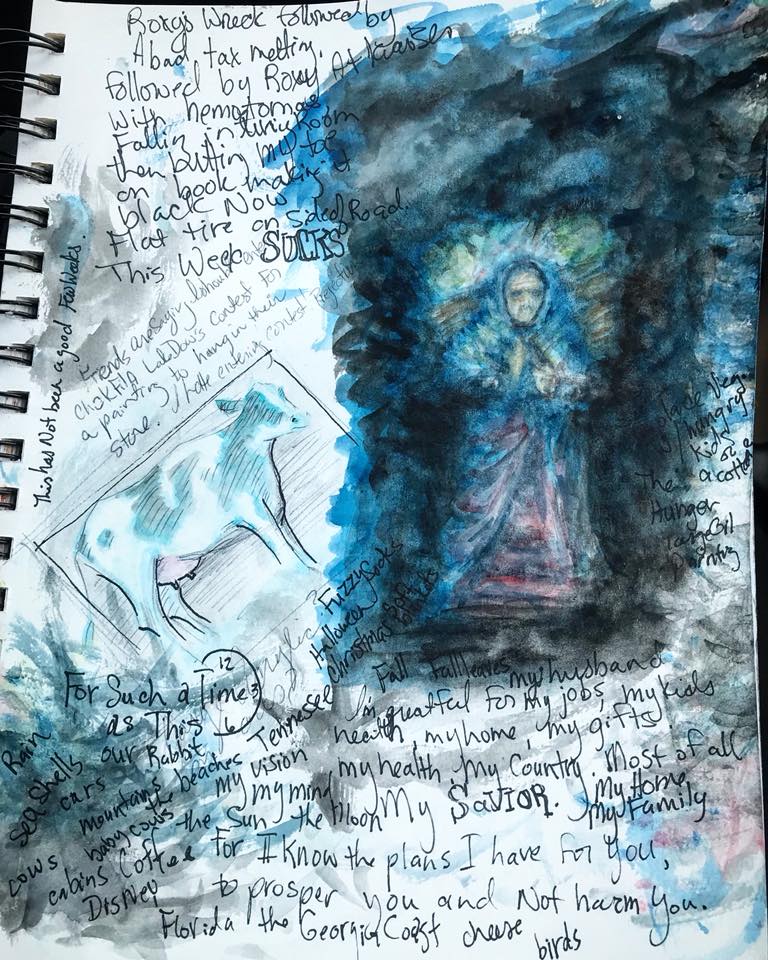 Roxy's Wreck followed by
A bad tax meeting,
followed by Roxy At Kaiser
with hemotomas
Falling in living Room
then putting my toe
on book making it
black Now
Flat tire on Side of Road.
This Week SUCKS
This has Not been a good Few Weeks.
Friends are saying I should enter
ChikFilA contest for
a painting to hang in their
store. I hate entering contest
w/ hungry
kids
or
The
Hunger
Painting
Fuzzy Socks
Halloween
Christmas
Fall Fall leaves my husband
For Such a Time
as This
12
3
6
I'm greatful for my jobs, my kids
health, my home, my gifts
our Rabbit
Tennessee
Rain
Sea Shells
cars
mountains the beaches
my vision my health, My Country. Most of all
baby cows my mind My SAVIOR. My Home,
My Family
cows
the Sun the Moon
cabins Coffee For I Know the plans I have for you,
Disney to prosper you and Not harm you.
Florida the Georgia Coast cheese
birds